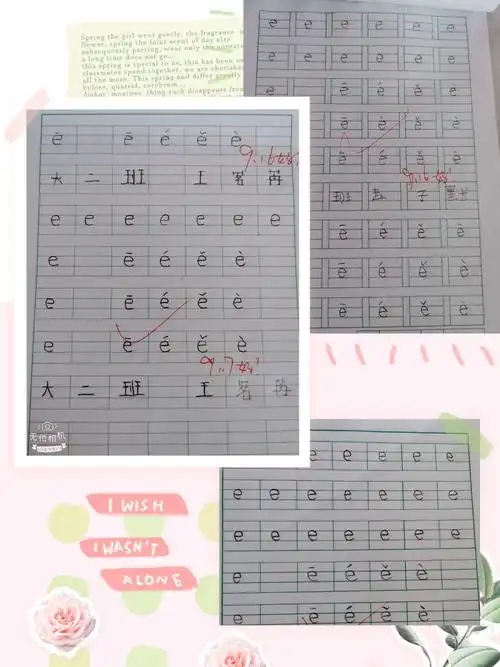 Spring the girl went gently, the fragrance
flower, spring the faint scent of day
subsequently parting, wear only the
a long time does not go...
this spring is special to us, this has been
classmates spend together, we are
all the more. This spring and differ greatly
before, quarrel,
thing such disappears from
e e e e e
e e e e e
e ē é ě è
ē é ě è
ē é ě è
班 子
ē é ě è
ē é ě è
ē é ě è
ē ē é ě è
9.16 好
大 二 班 王
e e e e e e e
e ē é ě è
e ē é ě è
e ē é ě è
9.17 好
大 二 班 王
无他相机
e e e e e
e e e e e e e
e e e e e e e
e ē é ě è
e ē é ě è
I WISH
I WASN'T
ALONE